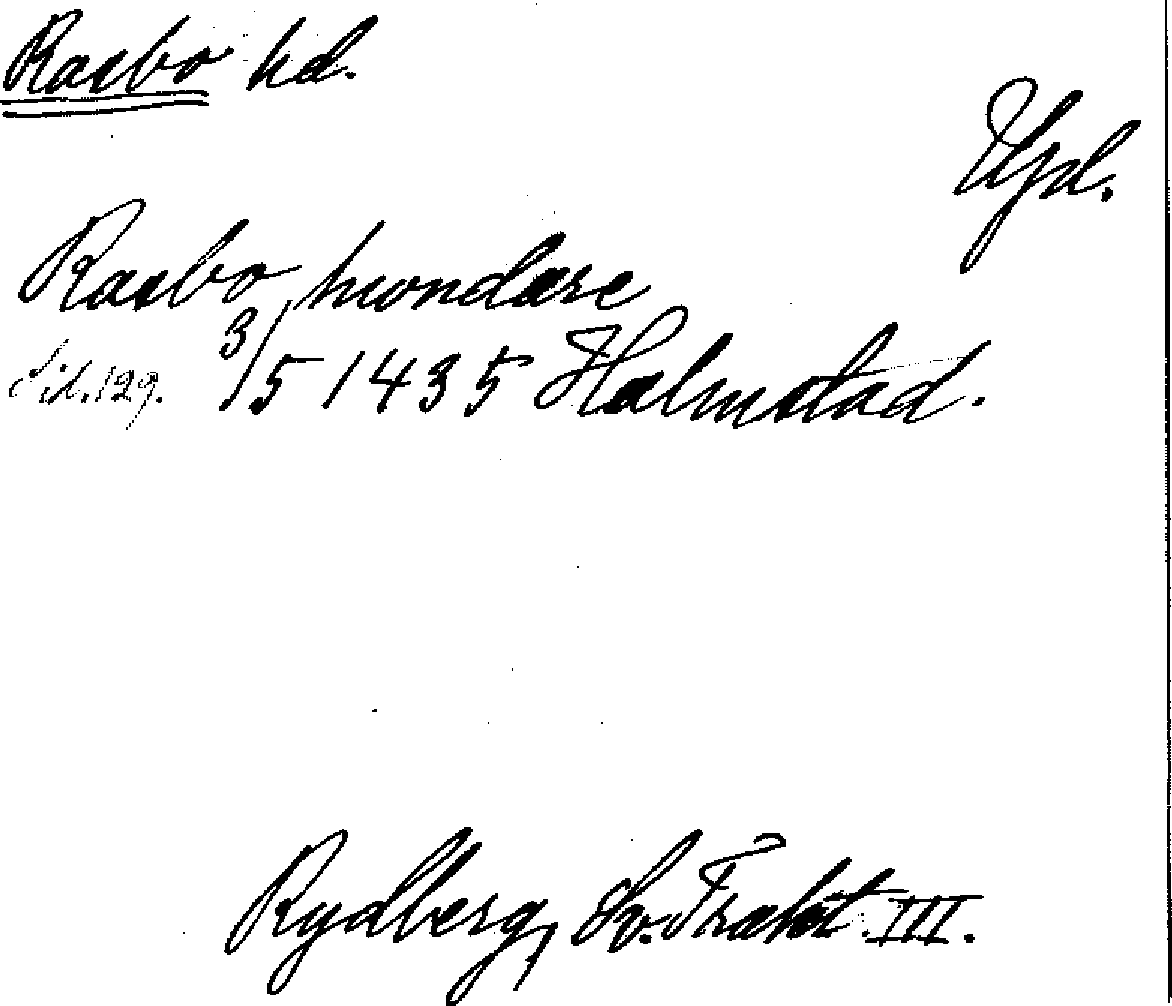 Rasbo hd.
Upl.
Rasbo hwondære
Sid. 129. 3/5 1435 Halmstad.
Rydberg, Sv. Trakt. III.